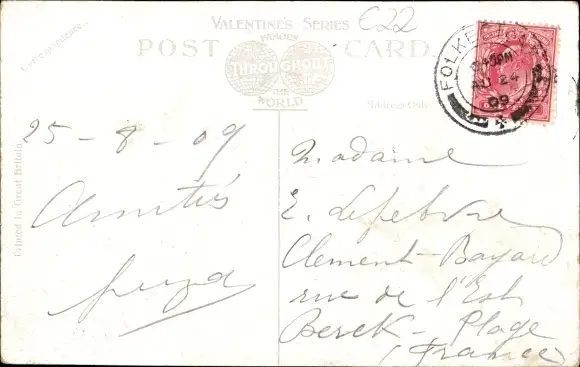 Correspondence.
VALENTINE'S SERIES
€22
FAMOUS
POST CARD
THROUGHOUT
THE
WORLD
Address Only
Printed in Great Britain.
FOLKESTONE
AU 24
09
25-8-09
Amitiés
Madame
E. Lefebvre
Clement-Bayard
rue de l'Est
Berck-Plage
(France)